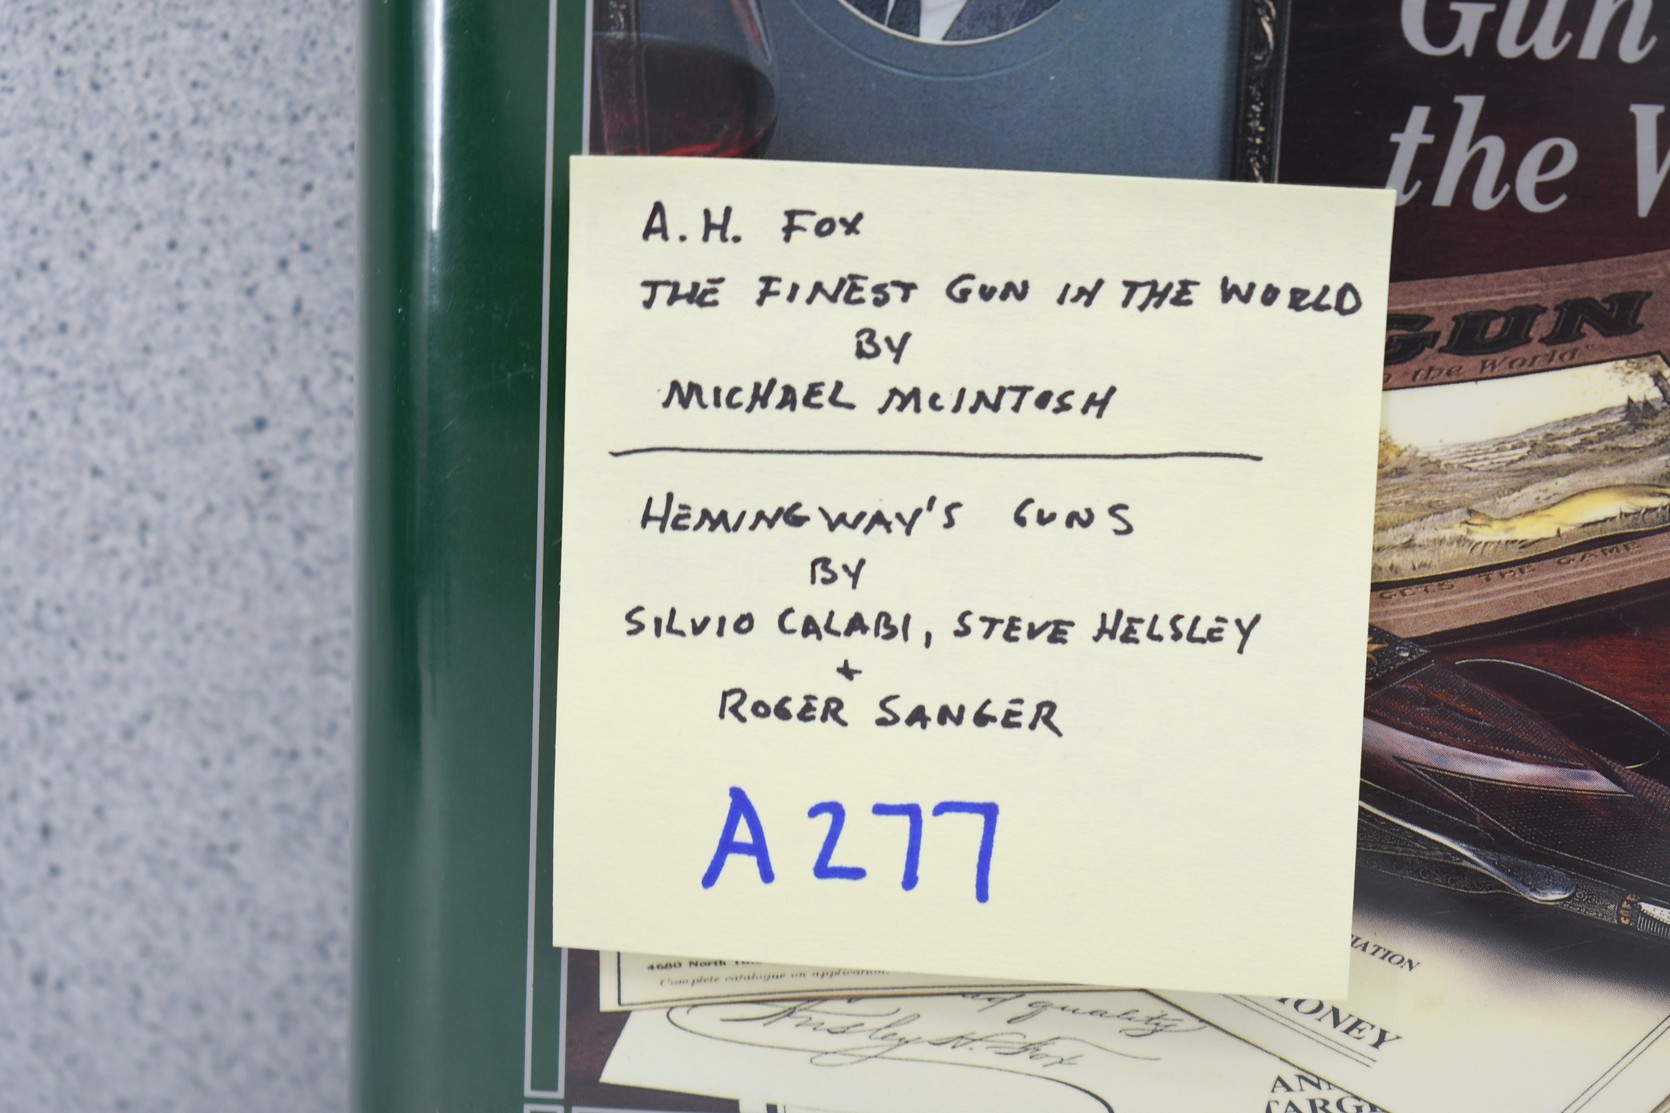 Gun
the
A.H. FOX
THE FINEST GUN IN THE WORLD
BY
MICHAEL MCINTOSH
HEMINGWAY'S GUNS
BY
SILVIO CALABI, STEVE HELSLEY
+
ROGER SANGER
A277
GUN
the World"
GETS THE GAME
4680 North
Complete catalogue on application.
quality
Ansley H. Fox